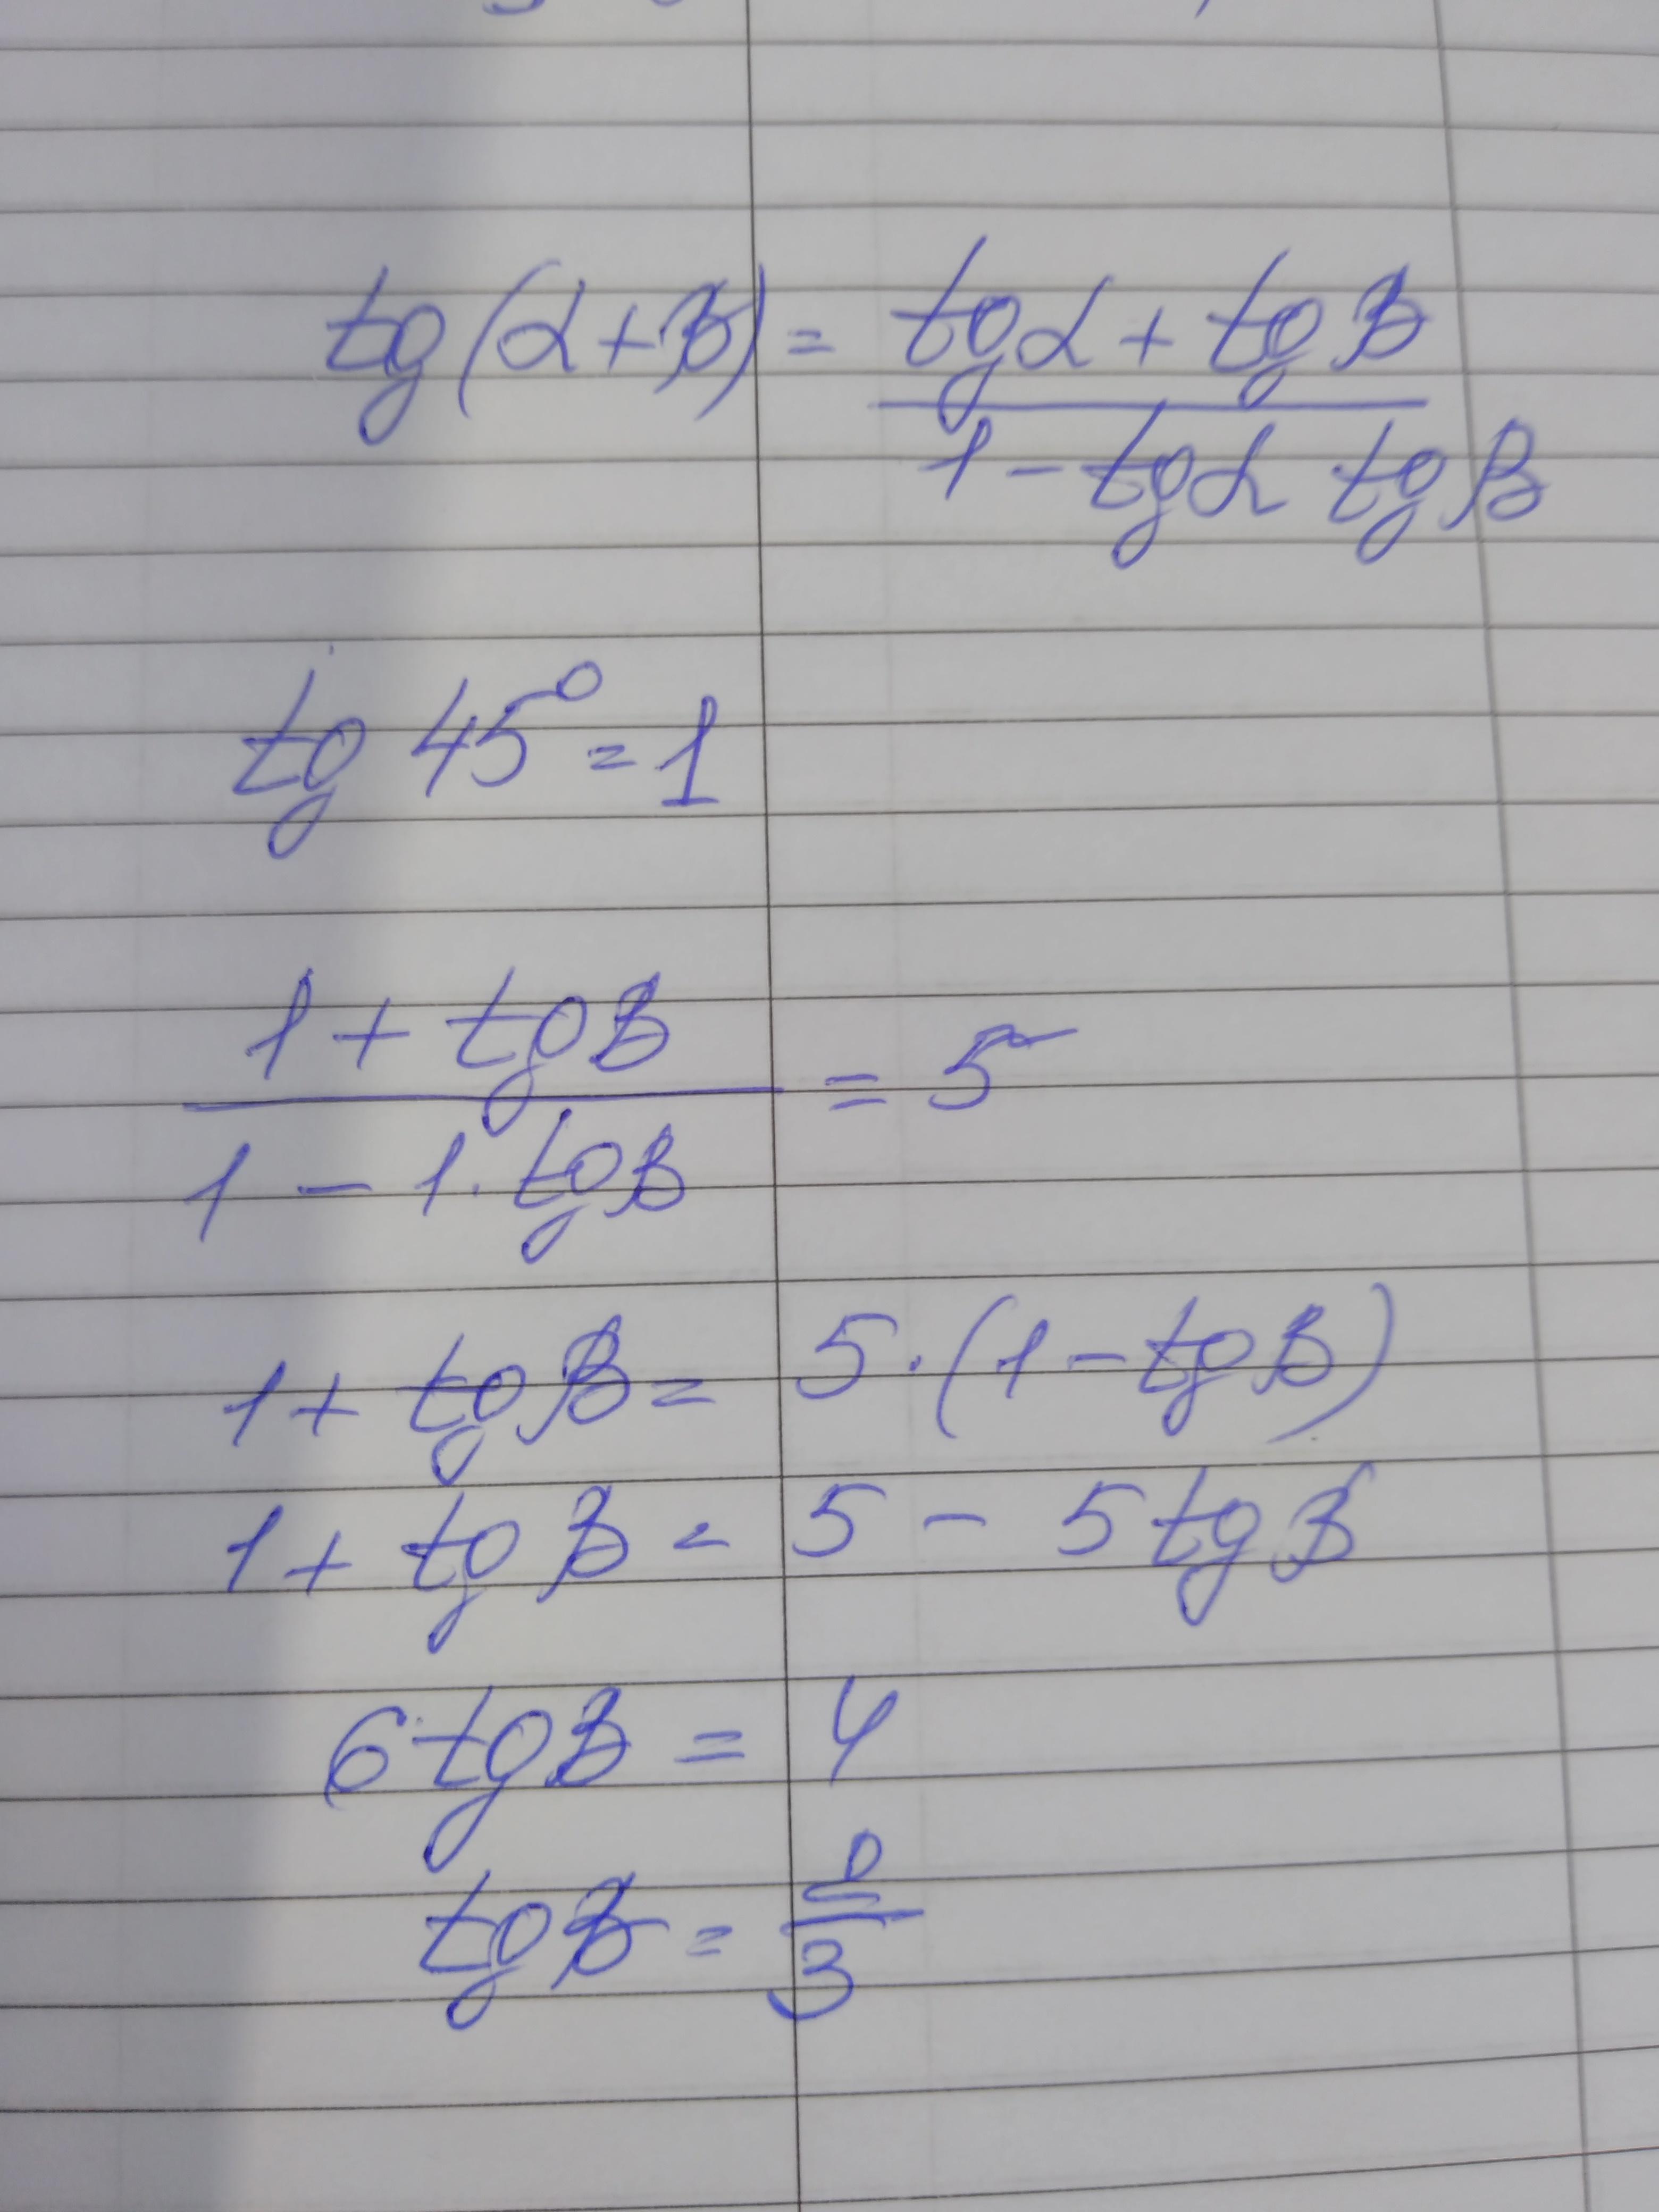 tg(α+β) = (tgα + tgβ) / (1 - tgα tgβ)
tg 45° = 1
(1 + tgβ) / (1 - 1·tgβ) = 5
1 + tgβ = 5·(1 - tgβ)
1 + tgβ = 5 - 5tgβ
6tgβ = 4
tgβ = 2/3